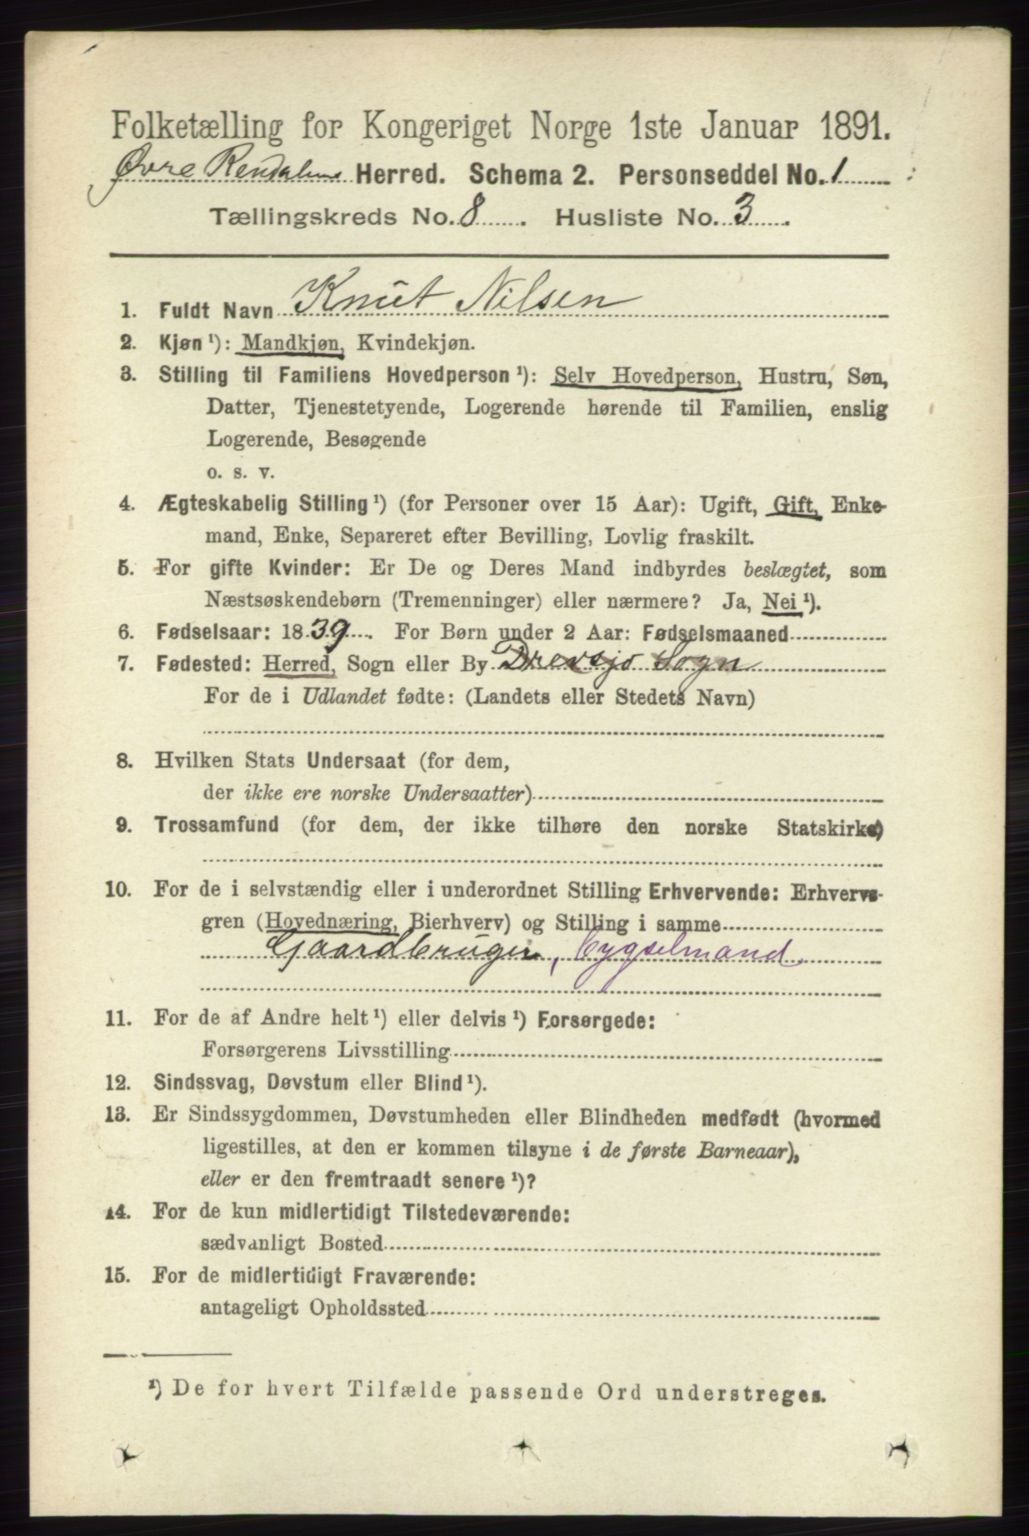 Folketælling for Kongeriget Norge 1ste Januar 1891.
Øvre Rendalens Herred. Schema 2. Personseddel No. 1
Tællingskreds No. 8. Husliste No. 3.
1. Fuldt Navn Knut Nilsen
2. Kjøn ¹): Mandkjøn, Kvindekjøn.
3. Stilling til Familiens Hovedperson ¹): Selv Hovedperson, Hustru, Søn,
Datter, Tjenestetyende, Logerende hørende til Familien, enslig
Logerende, Besøgende
o. s. v.
4. Ægteskabelig Stilling ¹) (for Personer over 15 Aar): Ugift, Gift, Enke-
mand, Enke, Separeret efter Bevilling, Lovlig fraskilt.
5. For gifte Kvinder: Er De og Deres Mand indbyrdes beslægtet, som
Næstsøskendebørn (Tremenninger) eller nærmere? Ja, Nei ¹).
6. Fødselsaar: 1839. For Børn under 2 Aar: Fødselsmaaned
7. Fødested: Herred, Sogn eller By Drevsjo Sogn
For de i Udlandet fødte: (Landets eller Stedets Navn)
8. Hvilken Stats Undersaat (for dem,
der ikke ere norske Undersaatter)
9. Trossamfund (for dem, der ikke tilhøre den norske Statskirke)
10. For de i selvstændig eller i underordnet Stilling Erhvervende: Erhvervs-
gren (Hovednæring, Bierhverv) og Stilling i samme
Gaardbruger, Bygselmand
11. For de af Andre helt ¹) eller delvis ¹) Forsørgede:
Forsørgerens Livsstilling
12. Sindssvag, Døvstum eller Blind ¹).
13. Er Sindssygdommen, Døvstumheden eller Blindheden medfødt (hvormed
ligestilles, at den er kommen tilsyne i de første Barneaar),
eller er den fremtraadt senere ¹)?
14. For de kun midlertidigt Tilstedeværende:
sædvanligt Bosted
15. For de midlertidigt Fraværende:
antageligt Opholdssted
¹) De for hvert Tilfælde passende Ord understreges.